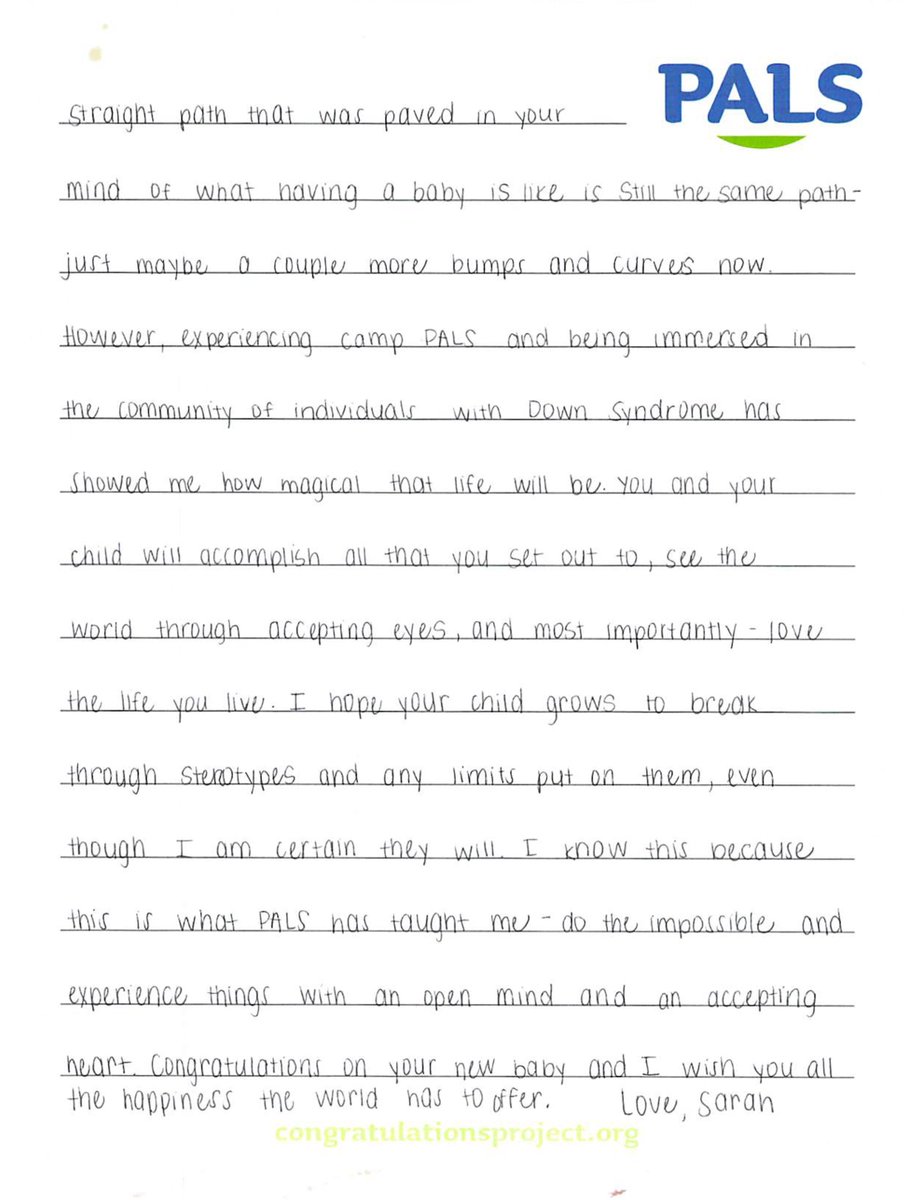 PALS
straight path that was paved in your
mind of what having a baby is like is still the same path-
just maybe a couple more bumps and curves now.
However, experiencing camp PALS and being immersed in
the community of individuals with Down Syndrome has
showed me how magical that life will be. You and your
child will accomplish all that you set out to, see the
world through accepting eyes, and most importantly - love
the life you live. I hope your child grows to break
through sterotypes and any limits put on them, even
though I am certain they will. I know this because
this is what PALS has taught me - do the impossible and
experience things with an open mind and an accepting
heart. Congratulations on your new baby and I wish you all
the happiness the world has to offer. Love, Sarah
congratulationsproject.org